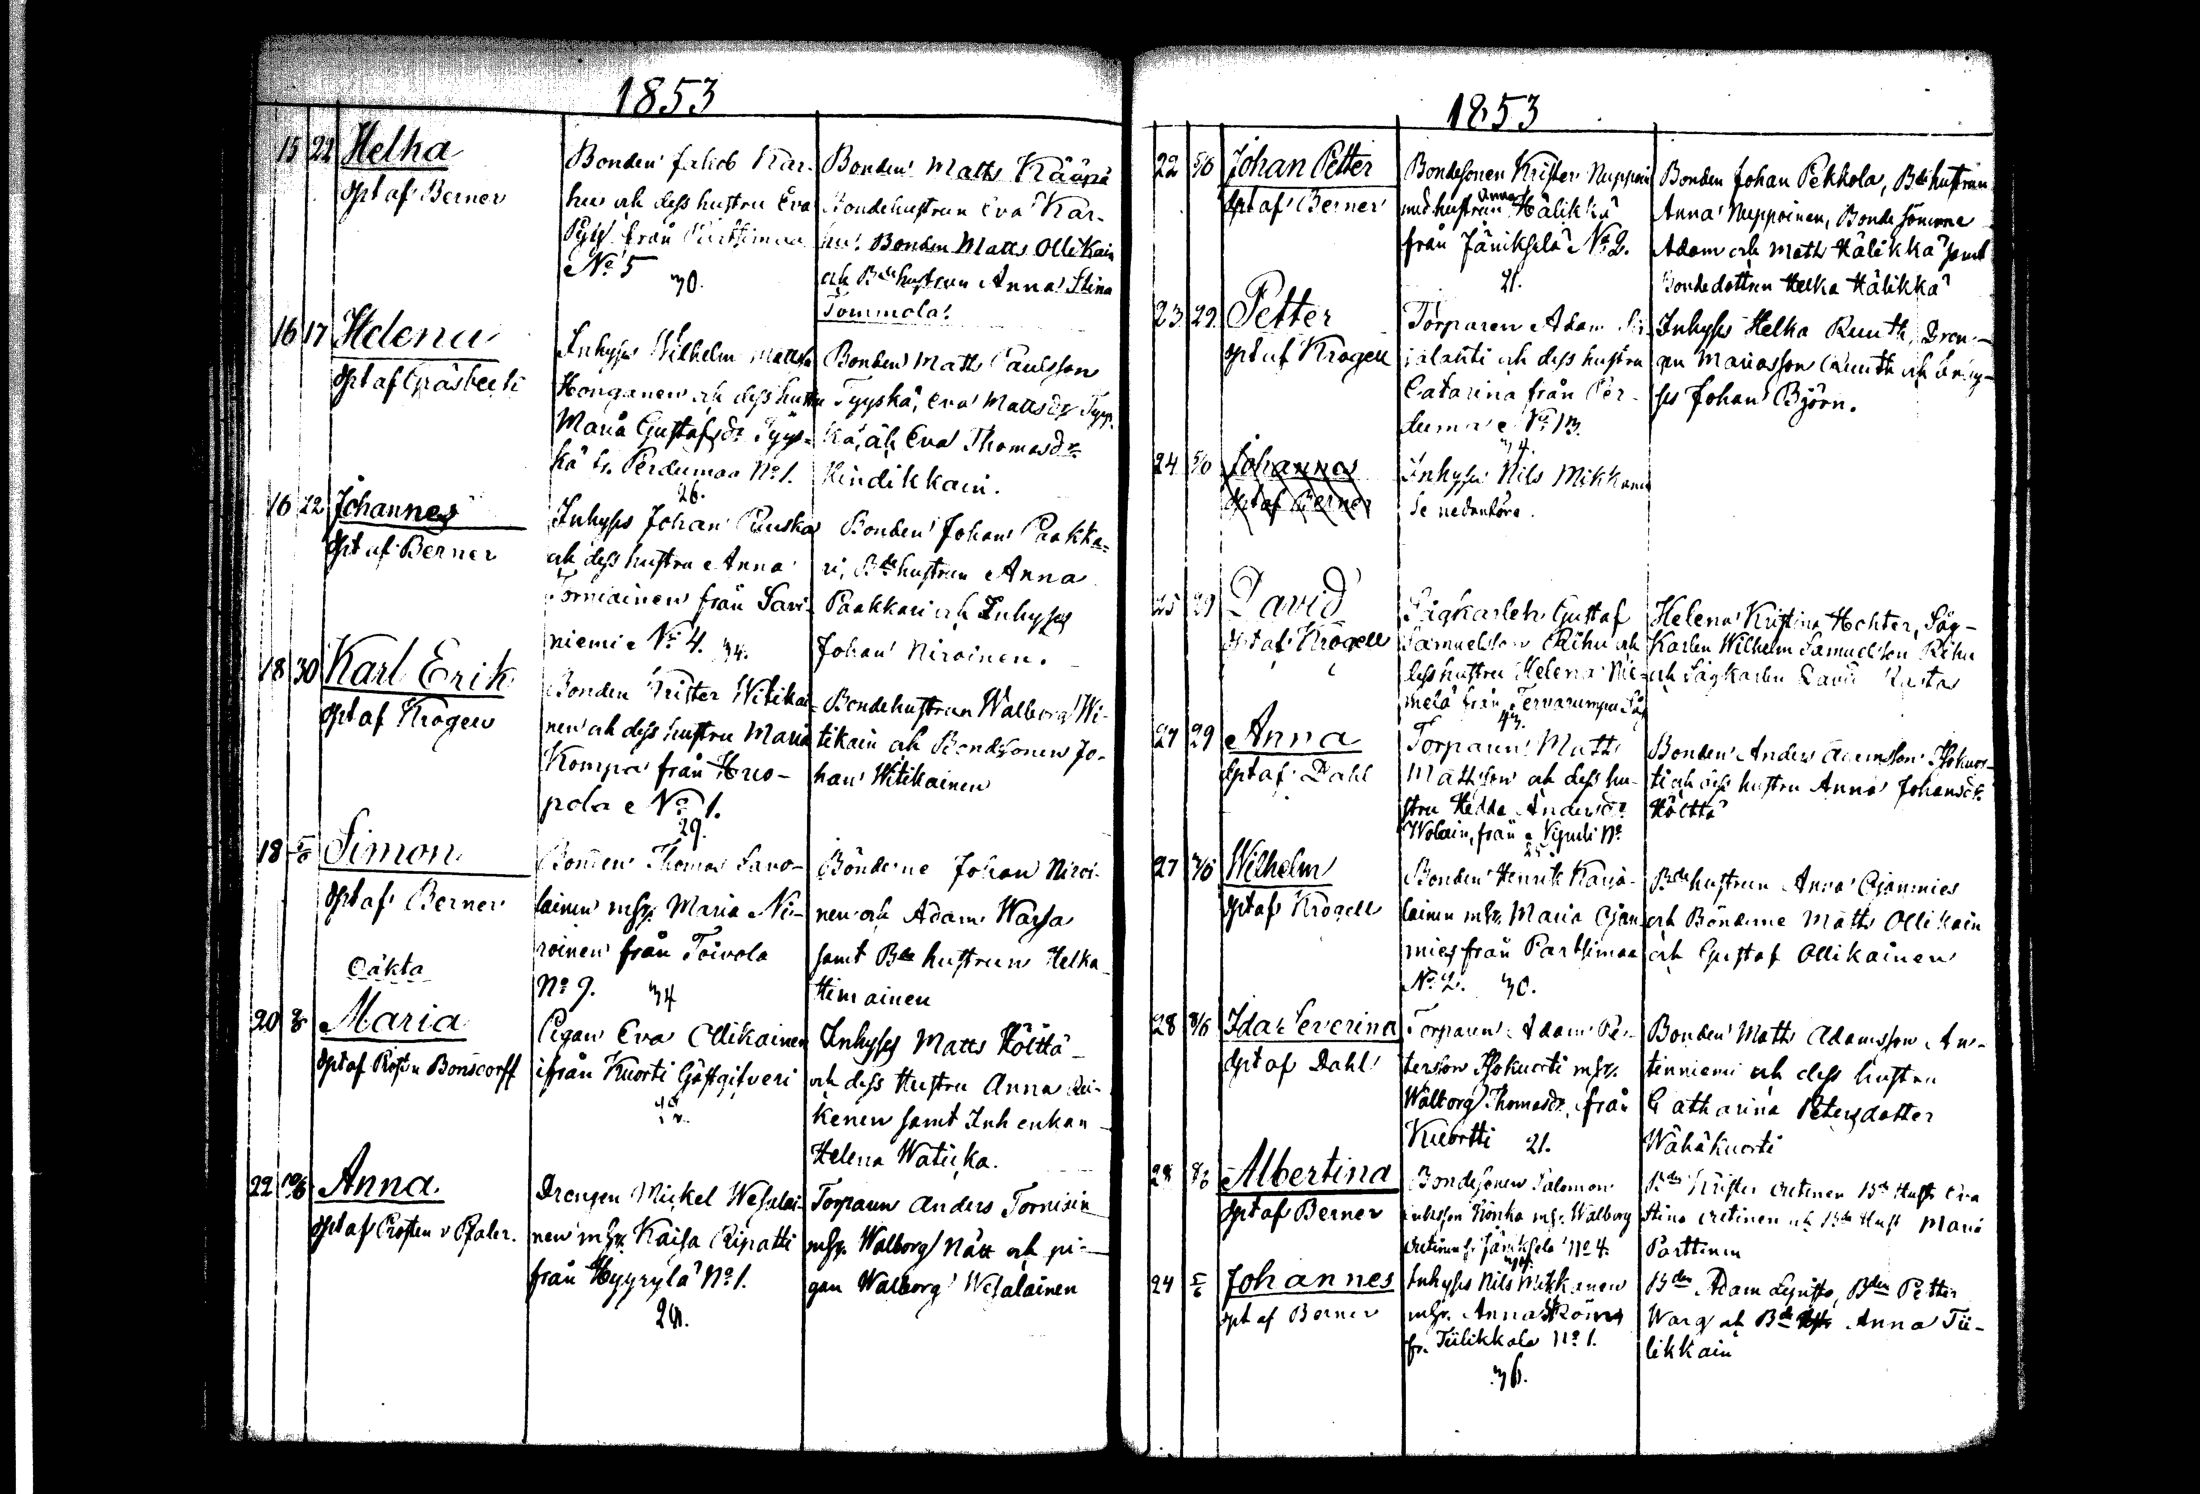 1853
15 22 Helka
Döpt af Berner
Bonden Jakob Kar-
hu och dess hustru Eva
Pyy från
No 5
30.
Bonden Matts Käärpä
Bondehustrun Eva Kar-
hu. Bonden Matts Ollikain
och Bde hustrun Anna Stina
Tommola.
16 17 Helena
Döpt af Gråsbeck
Inhyses Wilhelm Matts
Honganen och dess hustru
Maria Gustafsdr Tyys-
kä fr. Perdumaa No 1.
26.
Bonden Matts Paulsson
Tyyskä, Eva Mattsdr Tyys-
kä, och Eva Thomasdr
Kindikkain.
16 22 Johannes
Döpt af Berner
Inhyses Johan Puuska
och dess hustru Anna
Torniainen från Savi-
niemi No 4. 34.
Bonden Johan Paakka-
ri, Bde hustrun Anna
Paakkari och Inhyses
Johan Niroinen.
18 30 Karl Erik
Döpt af Krogell
Bonden Krister Witikai-
nen och dess hustru Maria
Kompa från Huo-
pola No 1.
29.
Bondehustrun Walborg Wi-
tikain och Bondsonen Jo-
han Witikainen
18 5/6 Simon
Döpt af Berner
Bonden Thomas Savo-
lainen m. h. Maria Ni-
roinen från Toivola
No 9. 34
Bönderne Johan Niroi-
nen och Adam Warsa
samt Bde hustrun Helka
Himainen
Oäkta
20 Maria
Döpt af Prosten Bonsdorff
Pigan Eva Ollikainen
ifrån Kuorti Gästgifveri
Inhyses Matts Höltta
och dess Hustru Anna
kenen samt Inh enkan
Helena Watuka.
22 10/6 Anna.
Döpt af Prosten v Pfaler.
Drengen Mickel Wesalai-
nen m. h. Kaisa Ripatti
från Hyyrylä No 1.
Torparen Anders Tornisin
m. h. Walborg Nätt och pi-
gan Walborg Wesalainen
1853
22 5/6 Johan Petter
Döpt af Berner
Bondesonen Krister Nuppoin
med hustrun Anna Hälikkä
från Jäniksela No 2.
21.
Bonden Johan Pekkola, Bde hustrun
Anna Nuppoinen, Bondesönerne
Adam och Matts Hälikkä samt
Bondedottren Helka Hälikkä
23 29 Petter
Döpt af Krogell
Torparen Adam
och dess hustru
Catarina från Per-
tuma No 13.
Inhyses Helka Ruuth, Dren-
gen Mariasson Ruuth och Inhy-
ses Johan Björn.
24 5/6 Johannes
Döpt af Berner
Inhyses Nils Mikkanen
Se nedanföre.
25 29 David
Döpt af Krogell
Sågkarlen Gustaf
Samuelsson Rihu och
dess hustru Helena Nie-
melä från Tervarumpu Såg
43.
Helena Kristina Hochter, Såg-
Karlen Wilhelm Samuelsson Rihu
och Sågkarlen David Rasta
27 29 Anna
Döpt af Dahl
Torparen Matts
Mattsson och dess hu-
stru Hedda Andersdr
Wolain, från Nipuli No
25
Bonden Anders Adamsson Isokuor-
ti och dess hustru Anna Johansdr
Höltta
27 7/6 Wilhelm
Döpt af Krogell
Bonden Henrik Karja-
lainen m. h. Maria Ojan-
mies från Partsimaa
No 2. 30.
Bde hustrun Anna Ojanmies
och Bönderne Matts Ollikain
och Gustaf Ollikainen
28 8/6 Ida Severina
Döpt af Dahl
Torparen Adam Pet-
tersson Isokuorti m. h.
Walborg Thomasdr. från
Kuortti 21.
Bonden Matts Adamsson An-
tinniemi och dess hustru
Catharina Petersdotter
Wähäkuorti
28 8/6 Albertina
Döpt af Berner
Bondesonen Salomon
Rönka m. h. Walborg
från Jäniksela No 4.
Bdn Krister Bde Hustr Eva
Stina och Bde Hust Maria
Parttinen
24 5/6 Johannes
Döpt af Berner
Inhyses Nils Mikkanen
m. h. Anna Ströms
fr. Tiilikkala No 1.
36.
Bden Adam Bden Petter
Warg och Bde Anna Tii-
likkain